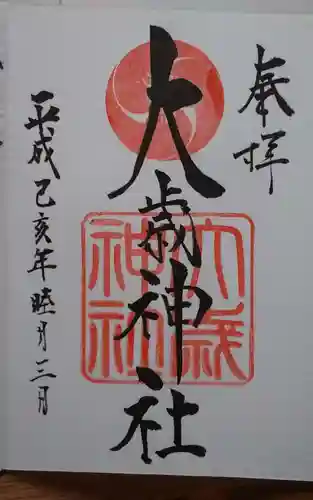 奉拝
大歳神社
大歳
神社
平成己亥年睦月三月